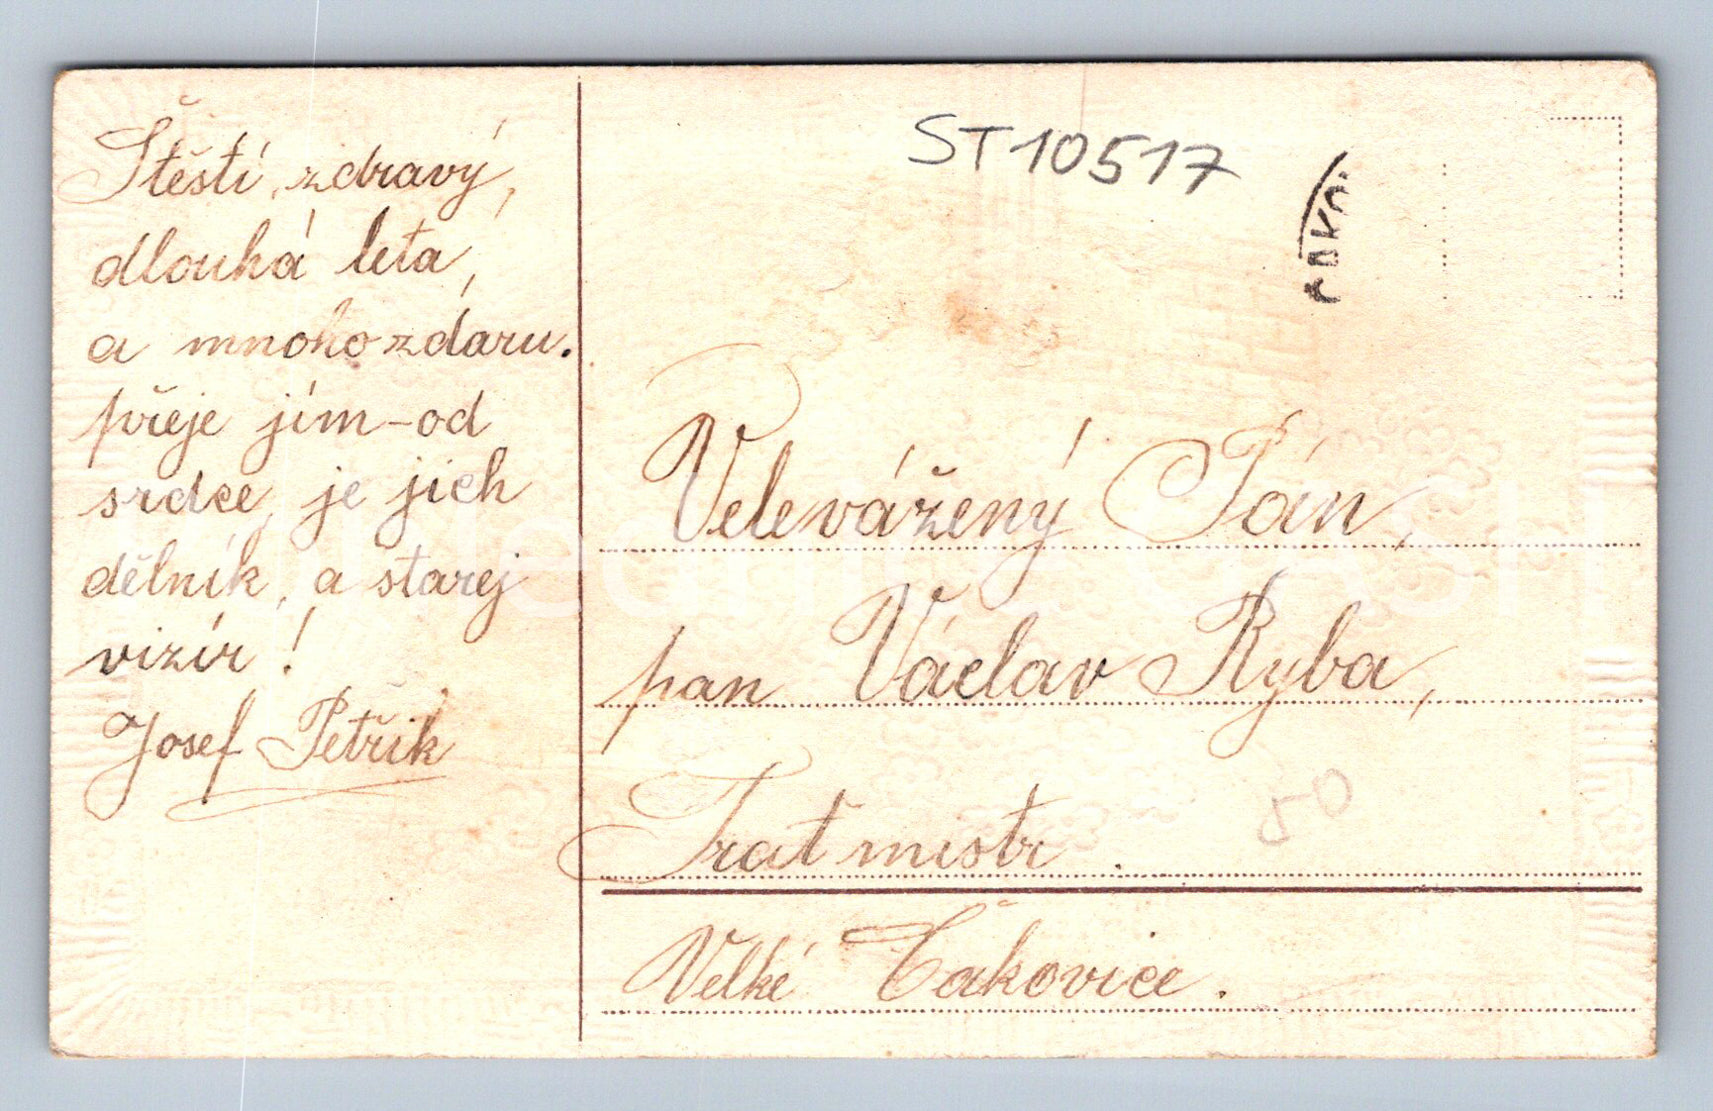 Štěstí, zdravý,
dlouhá leta,
a mnoho zdaru.
přeje jím-od
srdce, je jich
dělník, a starej
vizír!
Josef Petřík
ST10517
Velevážený Pán,
pan Václav Ryba,
Trať mistr.
50
Velké Čakovice.